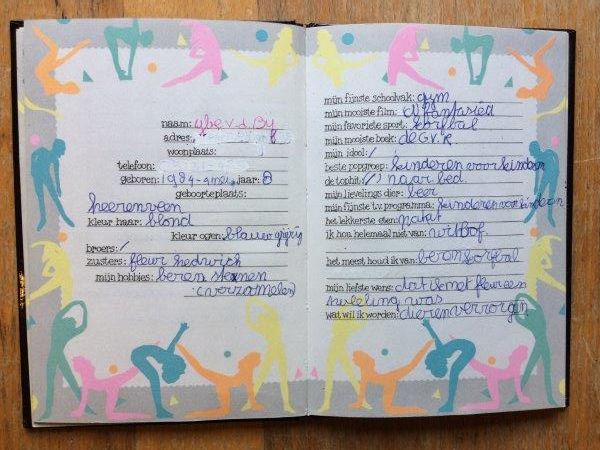 naam: ybe v.d. By
adres:
woonplaats:
telefoon:
geboren: 1984-4 mei, jaar: 8
geboorteplaats:
heerenveen
kleur haar: blond
kleur ogen: blauw grijs
broers: /
zusters: fleur hedwich
mijn hobbies: beren stenen
(verzamelen)
mijn fijnste schoolvak: gym
mijn mooiste film: fantasia
mijn favoriete sport: korfbal
mijn mooiste boek: de G.V.R.
mijn idool: /
beste popgroep: kinderen voor kinderen
de tophit: naar bed.
mijn lievelings dier: beer
mijn fijnste t.v. programma: kinderen voor kinderen
het lekkerste eten: patat
ik hou helemaal niet van: witlof.
het meest houd ik van: beren korfbal
mijn liefste wens: dat ik met fleur een
tweeling was
wat wil ik worden: dierenverzorgin